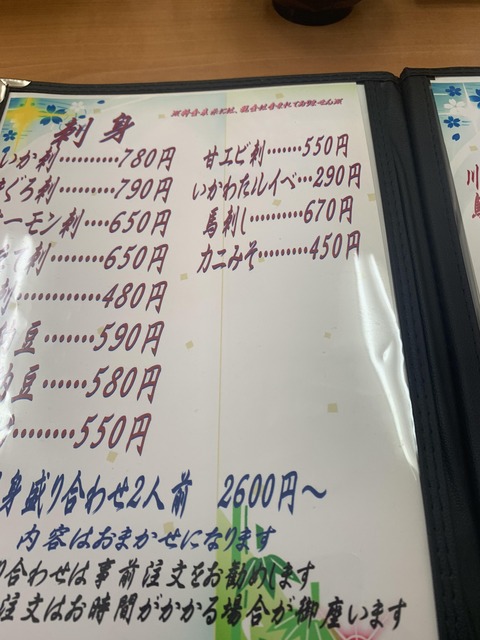 刺身
いか刺………780円
ぐろ刺………790円
ーモン刺……650円
刺………650円
刺…………480円
豆……590円
豆……580円
………550円
甘エビ刺………550円
いかわたルイベ…290円
馬刺し………670円
カニみそ………450円
身盛り合わせ2人前 2600円〜
内容はおまかせになります
り合わせは事前注文をお勧めします
注文はお時間がかかる場合が御座います
川